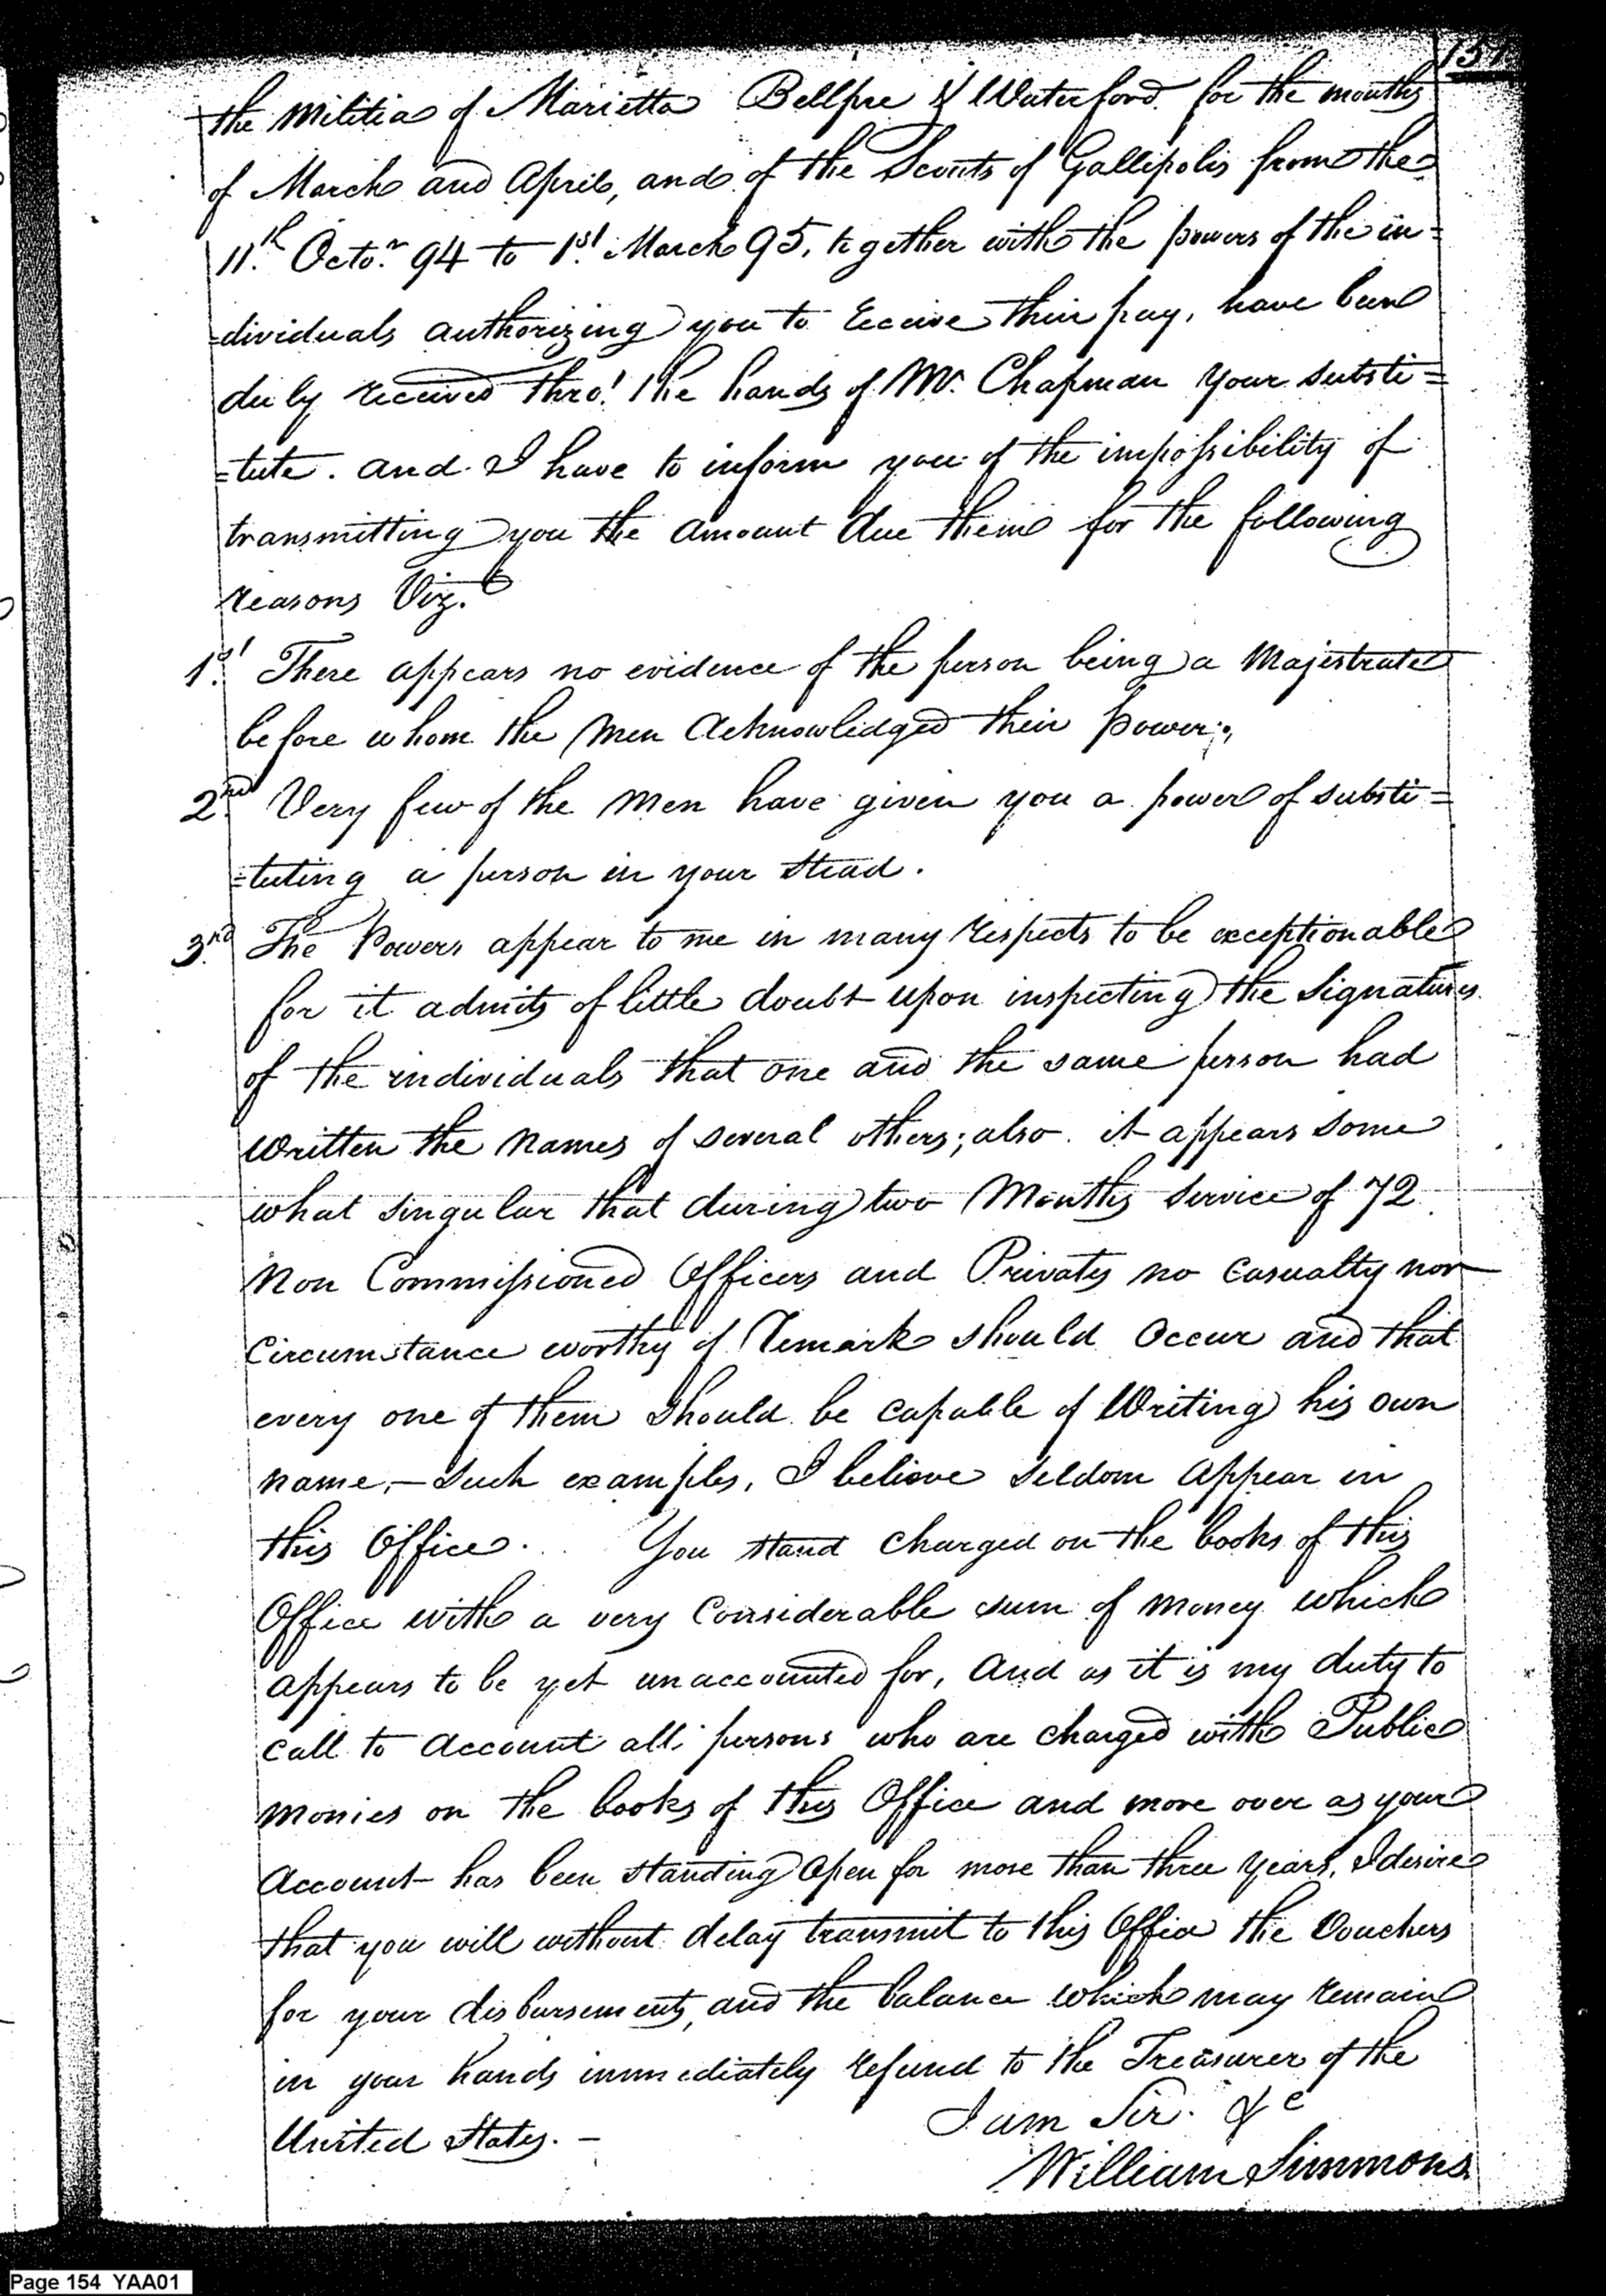 154
the Militia of Marietta Bellpre & Waterford for the months
of March and April, and of the Scouts of Gallipolis from the
11th Octor 94 to 1st March 95, together with the powers of the in=
=dividuals authorizing you to Receive their pay, have been
duly received thro' the hands of Mr. Chapman your substi=
=tute. and I have to inform you of the impossibility of
transmitting you the amount due them for the following
reasons Vizt
1st There appears no evidence of the person being a Majestrate
before whom the Men Acknowledged their power;
2nd Very few of the Men have given you a power of substi=
=tuting a person in your Stead.
3rd The Powers appear to me in many respects to be exceptionable
for it admits of little doubt upon inspecting the Signatures
of the individuals that one and the same person had
written the Names of several others; also it appears some
what singular that during two Months Service of 72
Non Commissioned Officers and Privates no Casualty nor
Circumstance worthy of Remark should Occur and that
every one of them should be capable of Writing his own
name,— Such examples, I believe seldom appear in
this Office. You stand charged on the books of this
Office with a very Considerable sum of money which
appears to be yet unaccounted for, And as it is my duty to
call to account all persons who are charged with Public
monies on the books of this Office and more over as your
Account has been standing Open for more than three Years, I desire
that you will without delay transmit to this Office the Vouchers
for your disbursements, and the balance which may remain
in your hands immediately refund to the Treasurer of the
United States. —
I am Sir. &c
William Simmons
Page 154 YAA01